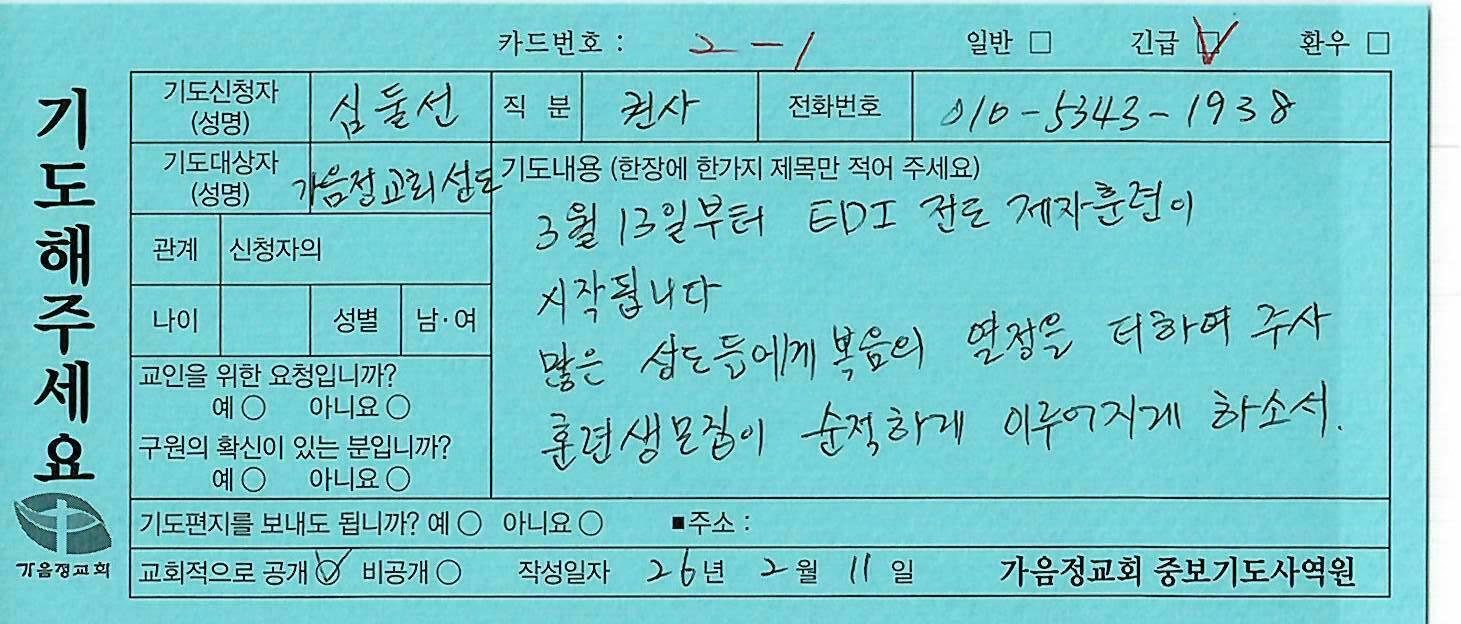 카드번호 : 2-1 일반 □ 긴급 ☑ 환우 □
기도해주세요
기도신청자 (성명) 심둘선 직 분 권사 전화번호 010-5343-1938
기도대상자 (성명) 가음정교회성도
기도내용 (한장에 한가지 제목만 적어 주세요)
3월 13일부터 EDI 전도 제자훈련이
시작됩니다
많은 성도들에게 복음의 열정을 더하여 주사
훈련생모집이 순적하게 이루어지게 하소서.
관계 신청자의
나이 성별 남·여
교인을 위한 요청입니까?
예 ○ 아니요 ○
구원의 확신이 있는 분입니까?
예 ○ 아니요 ○
기도편지를 보내도 됩니까? 예 ○ 아니요 ○ ■주소 :
교회적으로 공개 ☑ 비공개 ○ 작성일자 26년 2월 11일 가음정교회 중보기도사역원
가음정교회